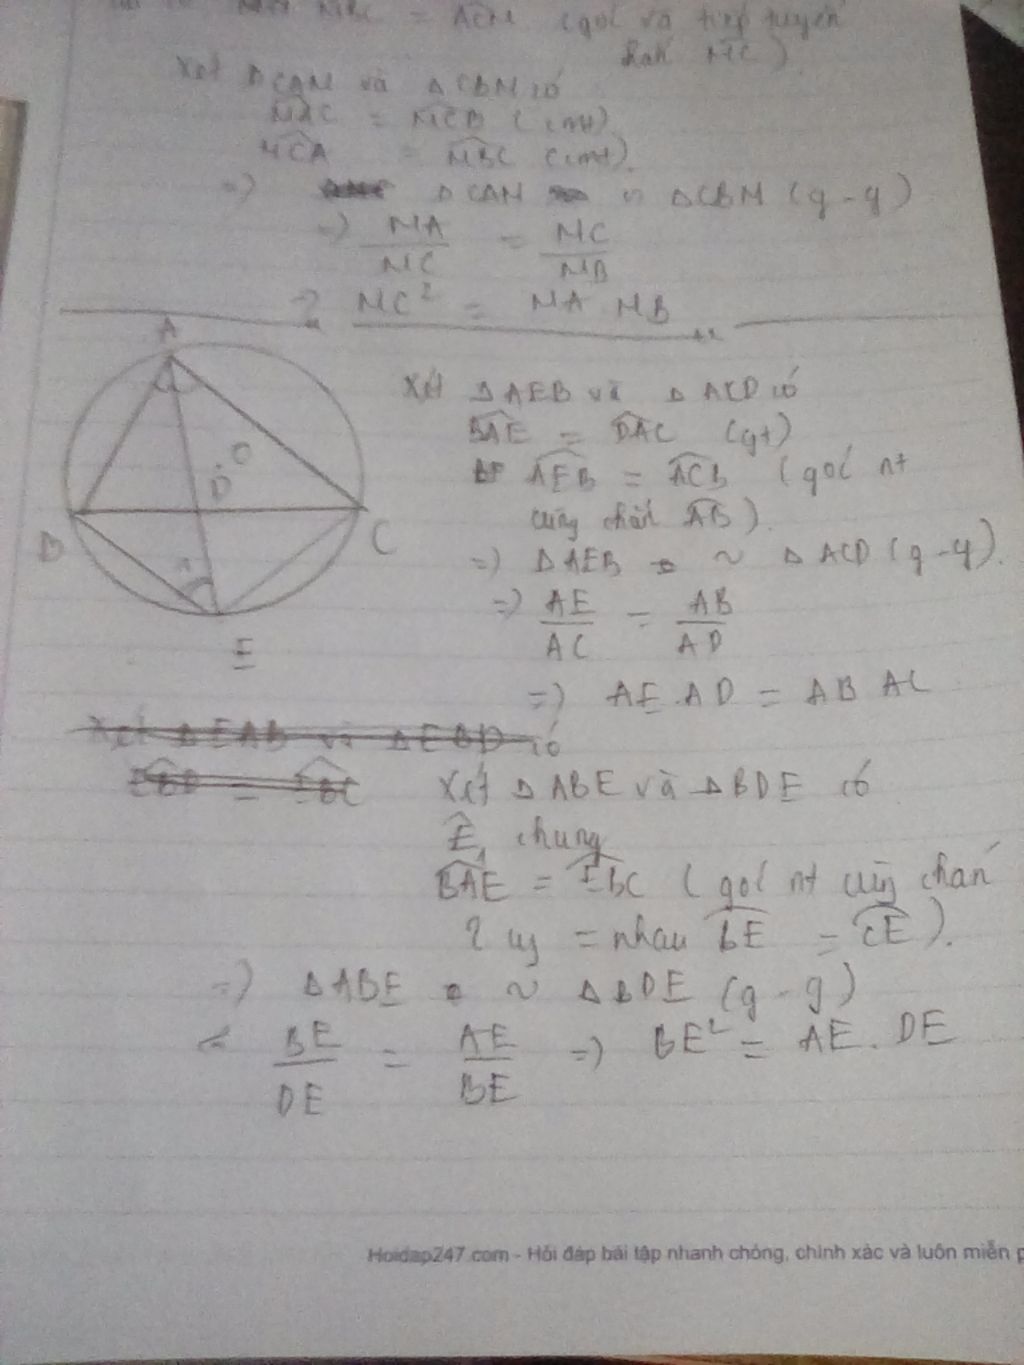 MBC = ACM (góc và tiếp tuyến
chắn MC)
Xét ΔCAM và ΔCBM có
MAC = MCB (cmt)
MCA = MBC (cmt).
=) ΔCAM ∽ ΔCBM (g-g)
=) MA/MC = MC/MB
=) MC² = MA MB
A
O
D
B
C
E
Xét ΔAEB và ΔACD có
BAE = DAC (gt)
AEB = ACB (góc nt
cùng chắn AB).
=) ΔAEB ~ ΔACD (g-g).
=) AE/AC = AB/AD
=) AE.AD = AB AC
Xét ΔEAB và ΔEBD có
EBD = EBC
Xét ΔABE và ΔBDE có
Ê₁ chung
BAE = EBC (góc nt cùng chắn
2 cung = nhau BE = CE).
=) ΔABE ~ ΔBDE (g-g)
BE/DE = AE/BE =) BE² = AE. DE
Hoidap247.com - Hỏi đáp bài tập nhanh chóng, chính xác và luôn miễn p